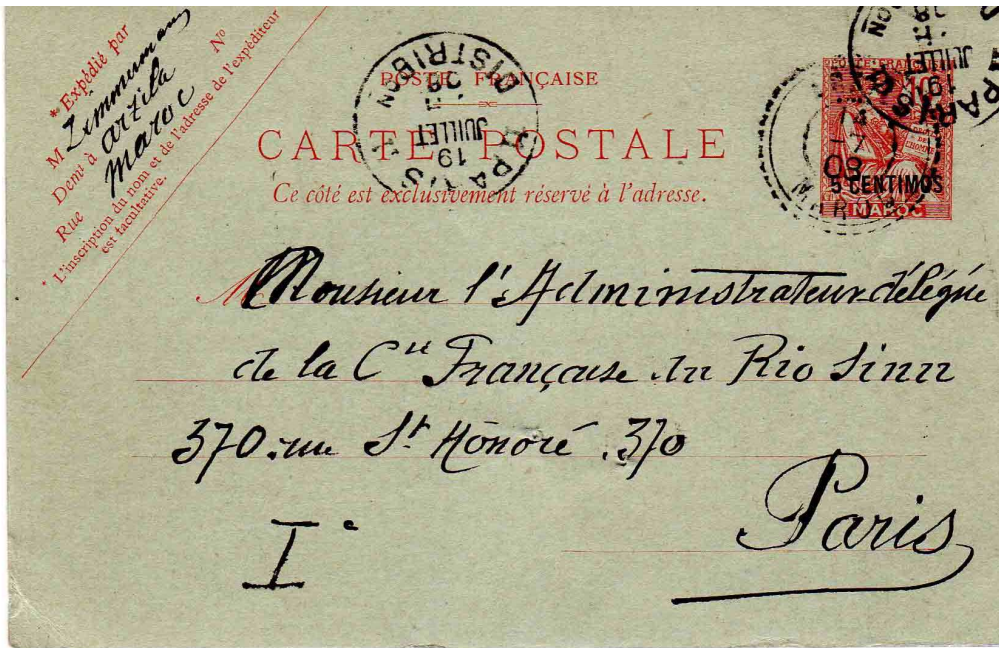 * Expédié par
M Zimmermann
Demt à Arzila
Maroc
Rue N°
* L'inscription du nom et de l'adresse de l'expéditeur
est facultative.
POSTE FRANÇAISE
CARTE POSTALE
Ce côté est exclusivement réservé à l'adresse.
PARIS
DISTRIBON
19
JUILLET
POSTE FRANÇAISE
5 CENTIMOS
MAROC
PARIS
19
JUILLET
Monsieur l'Administrateur-délégué
de la Cie Française du Rio Sinu
370. rue St Honoré . 370
Ie
Paris